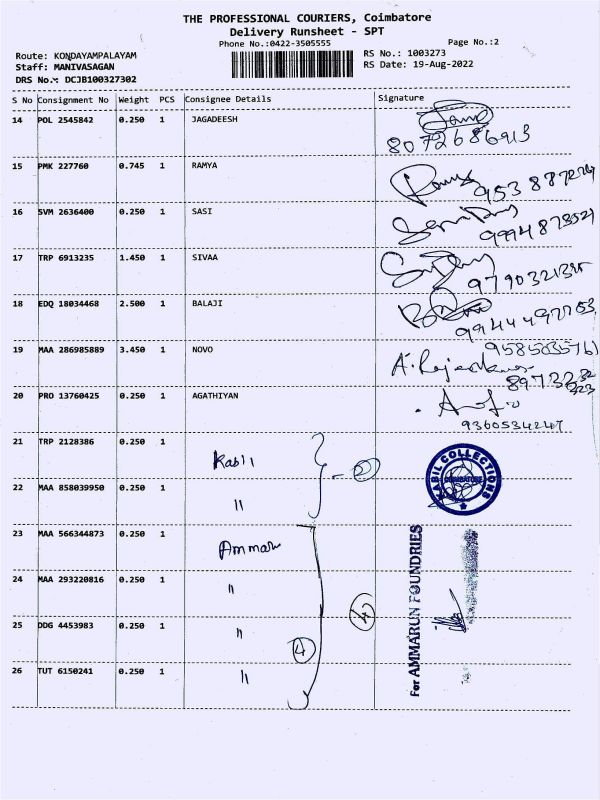 THE PROFESSIONAL COURIERS, Coimbatore
Delivery Runsheet - SPT
Phone No.:0422-3505555
Page No.:2
Route: KONDAYAMPALAYAM
Staff: MANIVASAGAN
DRS No.: DCJB100327302
RS No.: 1003273
RS Date: 19-Aug-2022
S No Consignment No Weight PCS Consignee Details Signature
14 POL 2545842 0.250 1 JAGADEESH
8072686913
15 PMK 227760 0.745 1 RAMYA
16 SVM 2636400 0.250 1 SASI
9994873521
17 TRP 6913235 1.450 1 SIVAA
18 EDQ 18034468 2.500 1 BALAJI
19 MAA 286985889 3.450 1 NOVO
20 PRO 13760425 0.250 1 AGATHIYAN
9360534247
21 TRP 2128386 0.250 1 Kabil
KABIL COLLECTIONS
COIMBATORE
22 MAA 858039950 0.250 1 "
23 MAA 566344873 0.250 1 Ammarun
24 MAA 293220816 0.250 1 "
25 DDG 4453983 0.250 1 "
4
26 TUT 6150241 0.250 1 "
For AMMARUN FOUNDRIES